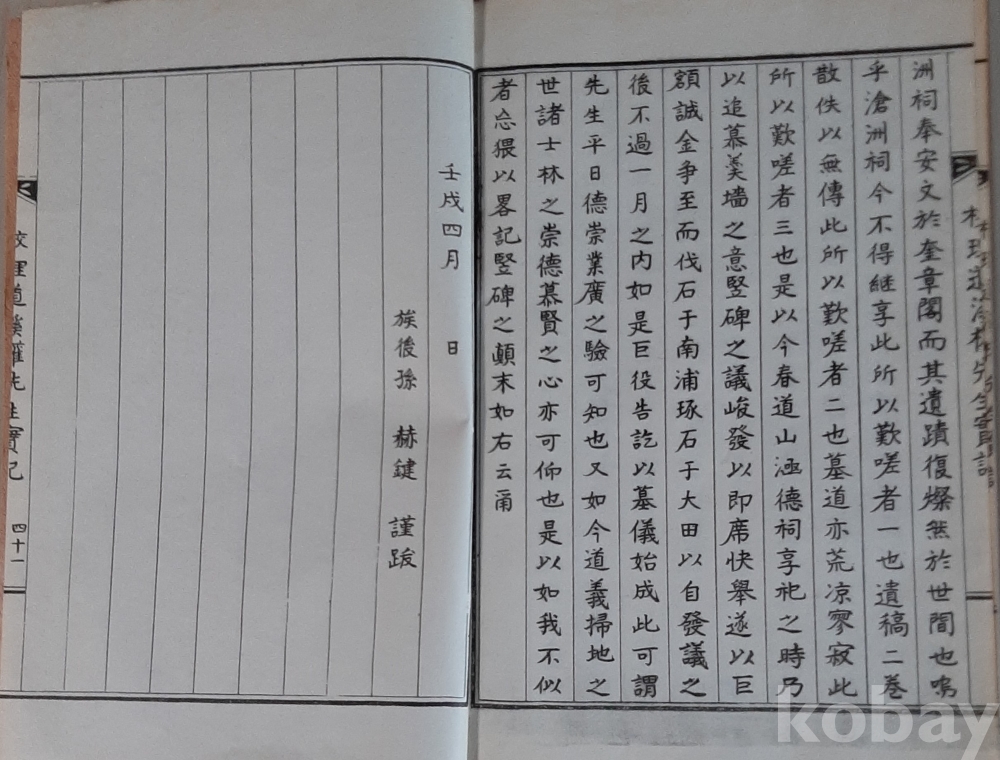 洲祠奉安文於奎章閣而其遺蹟復燦然於世間也嗚
乎滄洲祠今不得継享此所以歎嗟者一也遺稿二巻
散佚以無傳此所以歎嗟者二也墓道亦荒凉寥寂此
所以歎嗟者三也是以今春道山涵德祠享祀之時乃
以追慕羹墻之意竪碑之議峻發以即席快舉遂以巨
額誠金争至而伐石于南浦琢石于大田以自發議之
後不過一月之内如是巨役告訖以墓儀始成此可謂
先生平日德崇業廣之驗可知也又如今道義掃地之
世諸士林之崇德慕賢之心亦可仰也是以如我不似
者忘猥以畧記竪碑之顛末如右云甬
壬戌四月 日
族後孫 赫鍵 謹跋
校理道溪先生實記 四十一
kobay